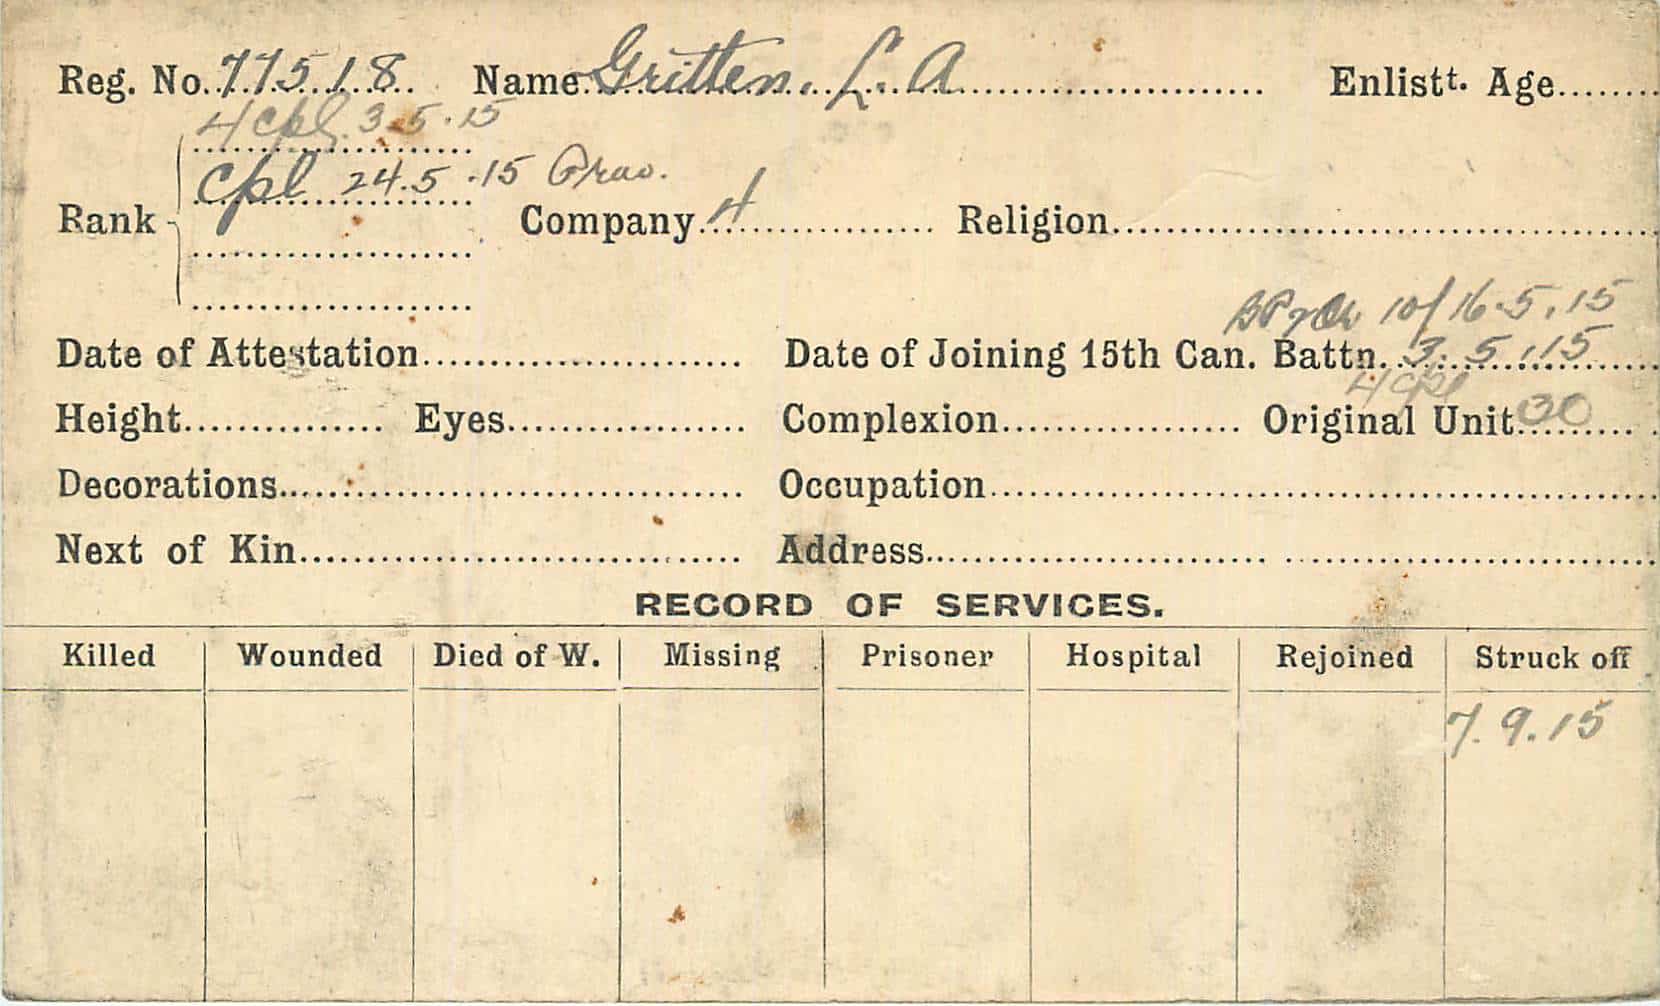 Reg. No. 77518 Name Gritten. L. A Enlistt. Age
L/Cpl. 3.5.15
Cpl 24.5.15 Prov.
Rank Company 4 Religion
10/16.5.15
Date of Attestation Date of Joining 15th Can. Battn. 3.5.15
L/Cpl
Height Eyes Complexion Original Unit 30
Decorations Occupation
Next of Kin Address
RECORD OF SERVICES.
Killed Wounded Died of W. Missing Prisoner Hospital Rejoined Struck off
7.9.15